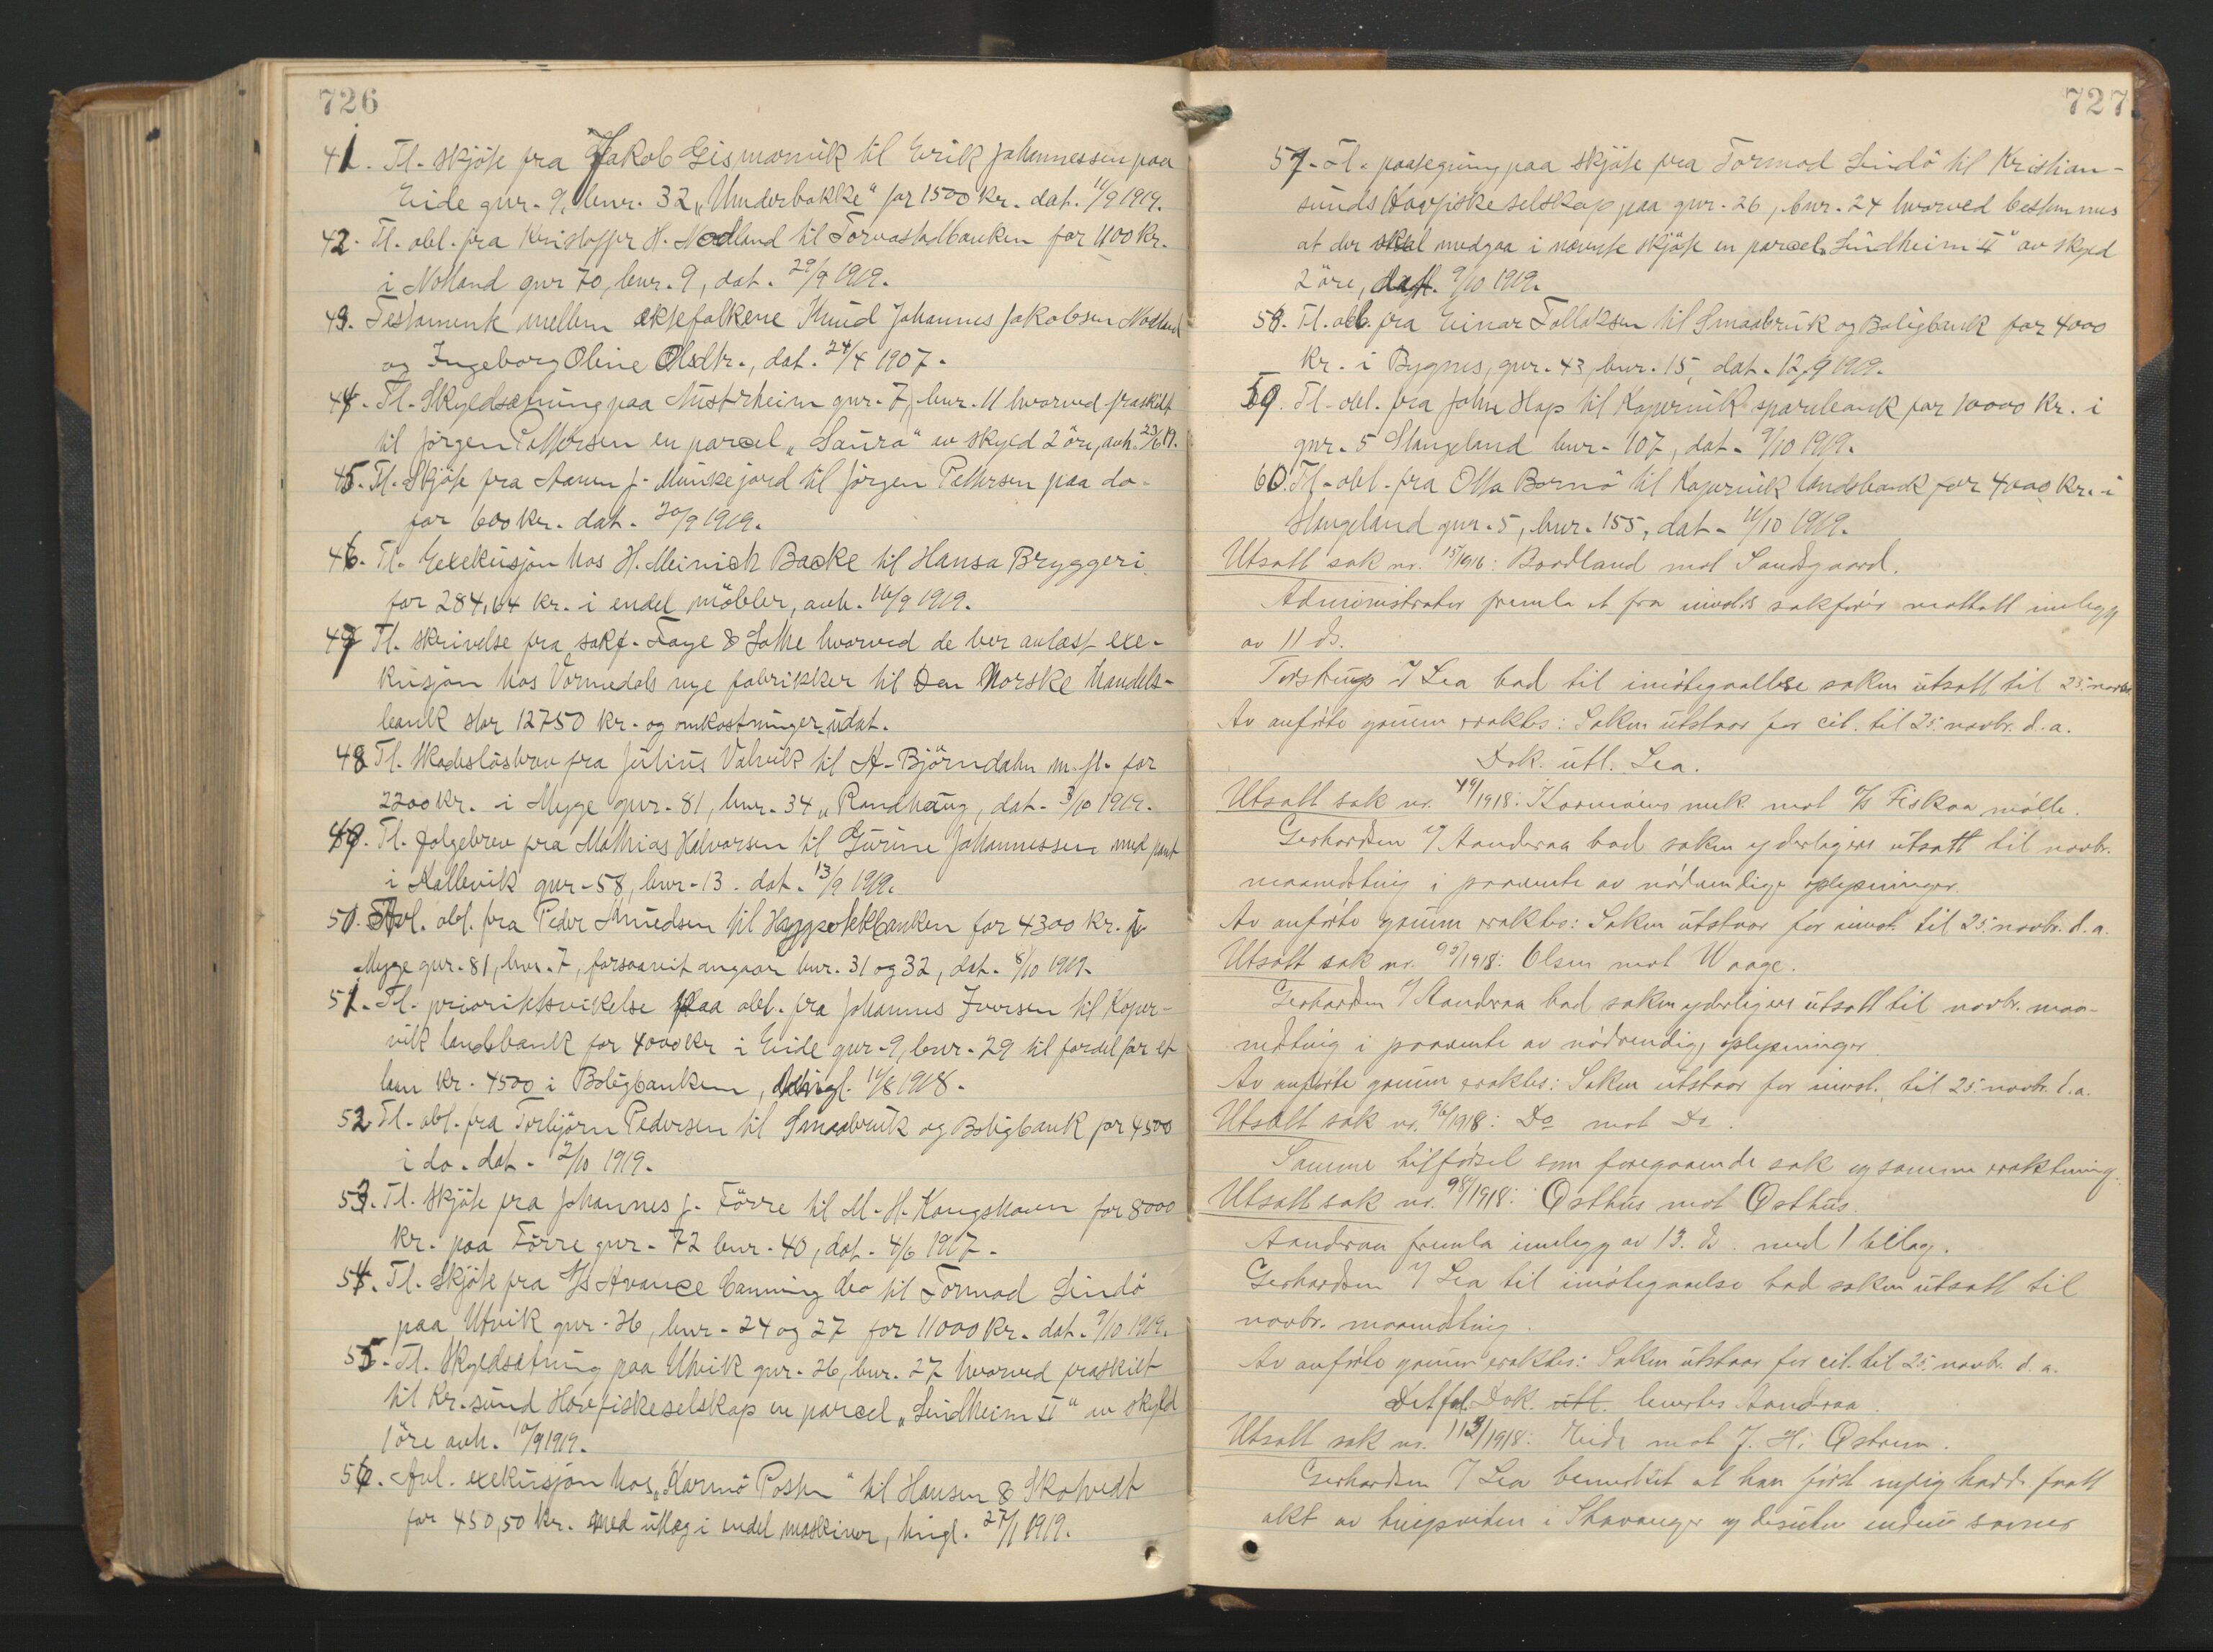 726
41. Tl. skjöte fra Jakob Gismarvik til Erik Johannessen paa
Eide gnr. 9, bnr. 32 „Underbakke" for 1500 kr. dat. 11/9 1919.
42. Tl. obl. fra Kristoffer H. Nodland til Torvastadbanken for 1100 kr.
i Notland gnr 70, bnr. 9, dat. 29/9 1919.
43. Testament mellem ektefolkene Knud Johannes Jakobsen Nodland
og Ingeborg Oline Olsdtr., dat. 24/4 1907.
44. Tl. Skyldsætning paa Nistrheim gnr. 7, bnr. 11 hvorved fraskilt
til Jörgen Pettersen en parcel „Saura" av skyld 2 öre, avh. 23/6 19.
45. Tl. Skjöte fra Aamun J. Munkejord til Jörgen Pettersen paa do.
for 600 kr. dat. 20/9 1919.
46. Tl. Exekusjon hos H. Meinich Backe til Hansa Bryggeri
for 284,64 kr. i endel möbler, avh. 16/9 1919.
47 Tl. skrivelse fra sakf. Faye & Lothe hvorved de ber avlæst exe-
kusjon hos Vormedals nye fabrikker til Den Norske Handels-
bank stor 12750 kr. og omkostninger, udat.
48 Tl. Skadeslösbrev fra Julius Valvik til A. Björndahn m.fl. for
2200 kr. i Myge gnr. 81, bnr. 34 „Randhaug, dat. 3/10 1919.
49. Tl. folgebrev fra Mathias Halvorsen til Gurine Johannessen med pant
i Kallevik gnr. 58, bnr. 13. dat. 13/9 1919.
50. Avl. obl. fra Peder Knudsen til Hyppotekbanken for 4300 kr. i
Myge gnr. 81, bnr. 7, forsaavit angaar bnr. 31 og 32, dat. 8/10 1919.
51. Tl. prioritetsvikelse paa obl. fra Johannes Iversen til Koper-
vik landsbank for 4000 kr i Eide gnr. 9, bnr. 29 til fordel for et
laan kr. 4500 i Boligbanken, tingl. 10/8 1918.
52 Tl. obl. fra Torbjörn Pedersen til Smaabruk og Boligbank for 4500
i do. dat. 2/10 1919.
53. Tl. skjöte fra Johannes J. Förre til M. H. Kongshavn for 8000
kr. paa Förre gnr. 72 bnr. 40, dat. 4/6 1917.
54. Tl. skjöte fra A/s Avance Canning Co til Tormod Lindö
paa Utvik gnr. 26, bnr. 24 og 27 for 11000 kr. dat. 9/10 1919.
55. Tl. Skyldsætning paa Utvik gnr. 26, bnr. 27 hvorved fraskilt
til Kr.sund Havfiskeselskap en parcel „Lindheim II" av skyld
1 öre avh. 10/9 1919.
56. Avl. exekusjon hos „Karmö Posten" til Hansen & Skotvedt
for 450,50 kr. med utlæg i endel maskiner, tingl. 27/1 1919.
727.
57. Tl. paategning paa skjöte fra Tormod Lindö til Kristian-
sunds Havfiskeselskap paa gnr. 26, bnr. 24 hvorved bestemmes
at der skal medgaa i nævnte skjöte en parcel „Lindheim II" av skyld
2 öre, dat. 9/10 1919.
58. Tl. obl. fra Einar Tollaksen til Smaabruk og Boligbank for 4000
kr. i Bygnes, gnr. 43, bnr. 15, dat. 12/9 1919.
59. Tl. obl. fra John Hop til Kopervik sparebank for 10000 kr. i
gnr. 5 Stangeland bnr. 107, dat. 9/10 1919.
60. Tl. obl. fra Otto Bornö til Kopervik landsbank for 4000 kr. i
Stangeland gnr. 5, bnr. 155, dat. 11/10 1919.
Utsatt sak nr. 15/1916: Bordland mot Sandsgaard.
Administrator fremla et fra invst.s sakfører mottatt innlegg
av 11 ds.
Torstrup v/ Lea bad til imøtegaaelse saken utsatt til 25. novbr.
Av anførte grunn eraktes: Saken utstaar for cit. til 25. novbr. d. a.
Dok. utl. Lea.
Utsatt sak nr. 49/1918: Karmøens mek mot A/s Fiskaa mølle.
Gerhardsen v/ Aanderaa bad saken yderligere utsatt til novbr.
maanedsting i paavente av nødvendige oplysninger.
Av anførte grunn eraktes: Saken utstaar for invst. til 25. novbr. d. a.
Utsatt sak nr. 95/1918: Olsen mot Waage.
Gerhardsen v/ Aanderaa bad saken yderligere utsatt til novbr. maa-
nedsting i paavente av nødvendige oplysninger
Av anførte grunn eraktes: Saken utstaar for invst. til 25. novbr. d. a.
Utsatt sak nr. 96/1918: Do mot Do.
Samme tilførsel som foregaaende sak og samme eraktning.
Utsatt sak nr. 98/1918: Østhus mot Østhus.
Aanderaa fremla innlegg av 13. ds. med 1 bilag.
Gerhardsen v/ Lea til imøtegaaelse bad saken utsatt til
novbr. maanedsting.
Av anførte grunn eraktes: Saken utstaar for cit. til 25. novbr. d. a.
Det fol. Dok. utl. levertes Aanderaa.
Utsatt sak nr. 113/1918: Eide mot J. H. Østrem.
Gerhardsen v/ Lea bemerket at han først nylig hadde faatt
akt av tingsviten i Stavanger og desuten endnu savner